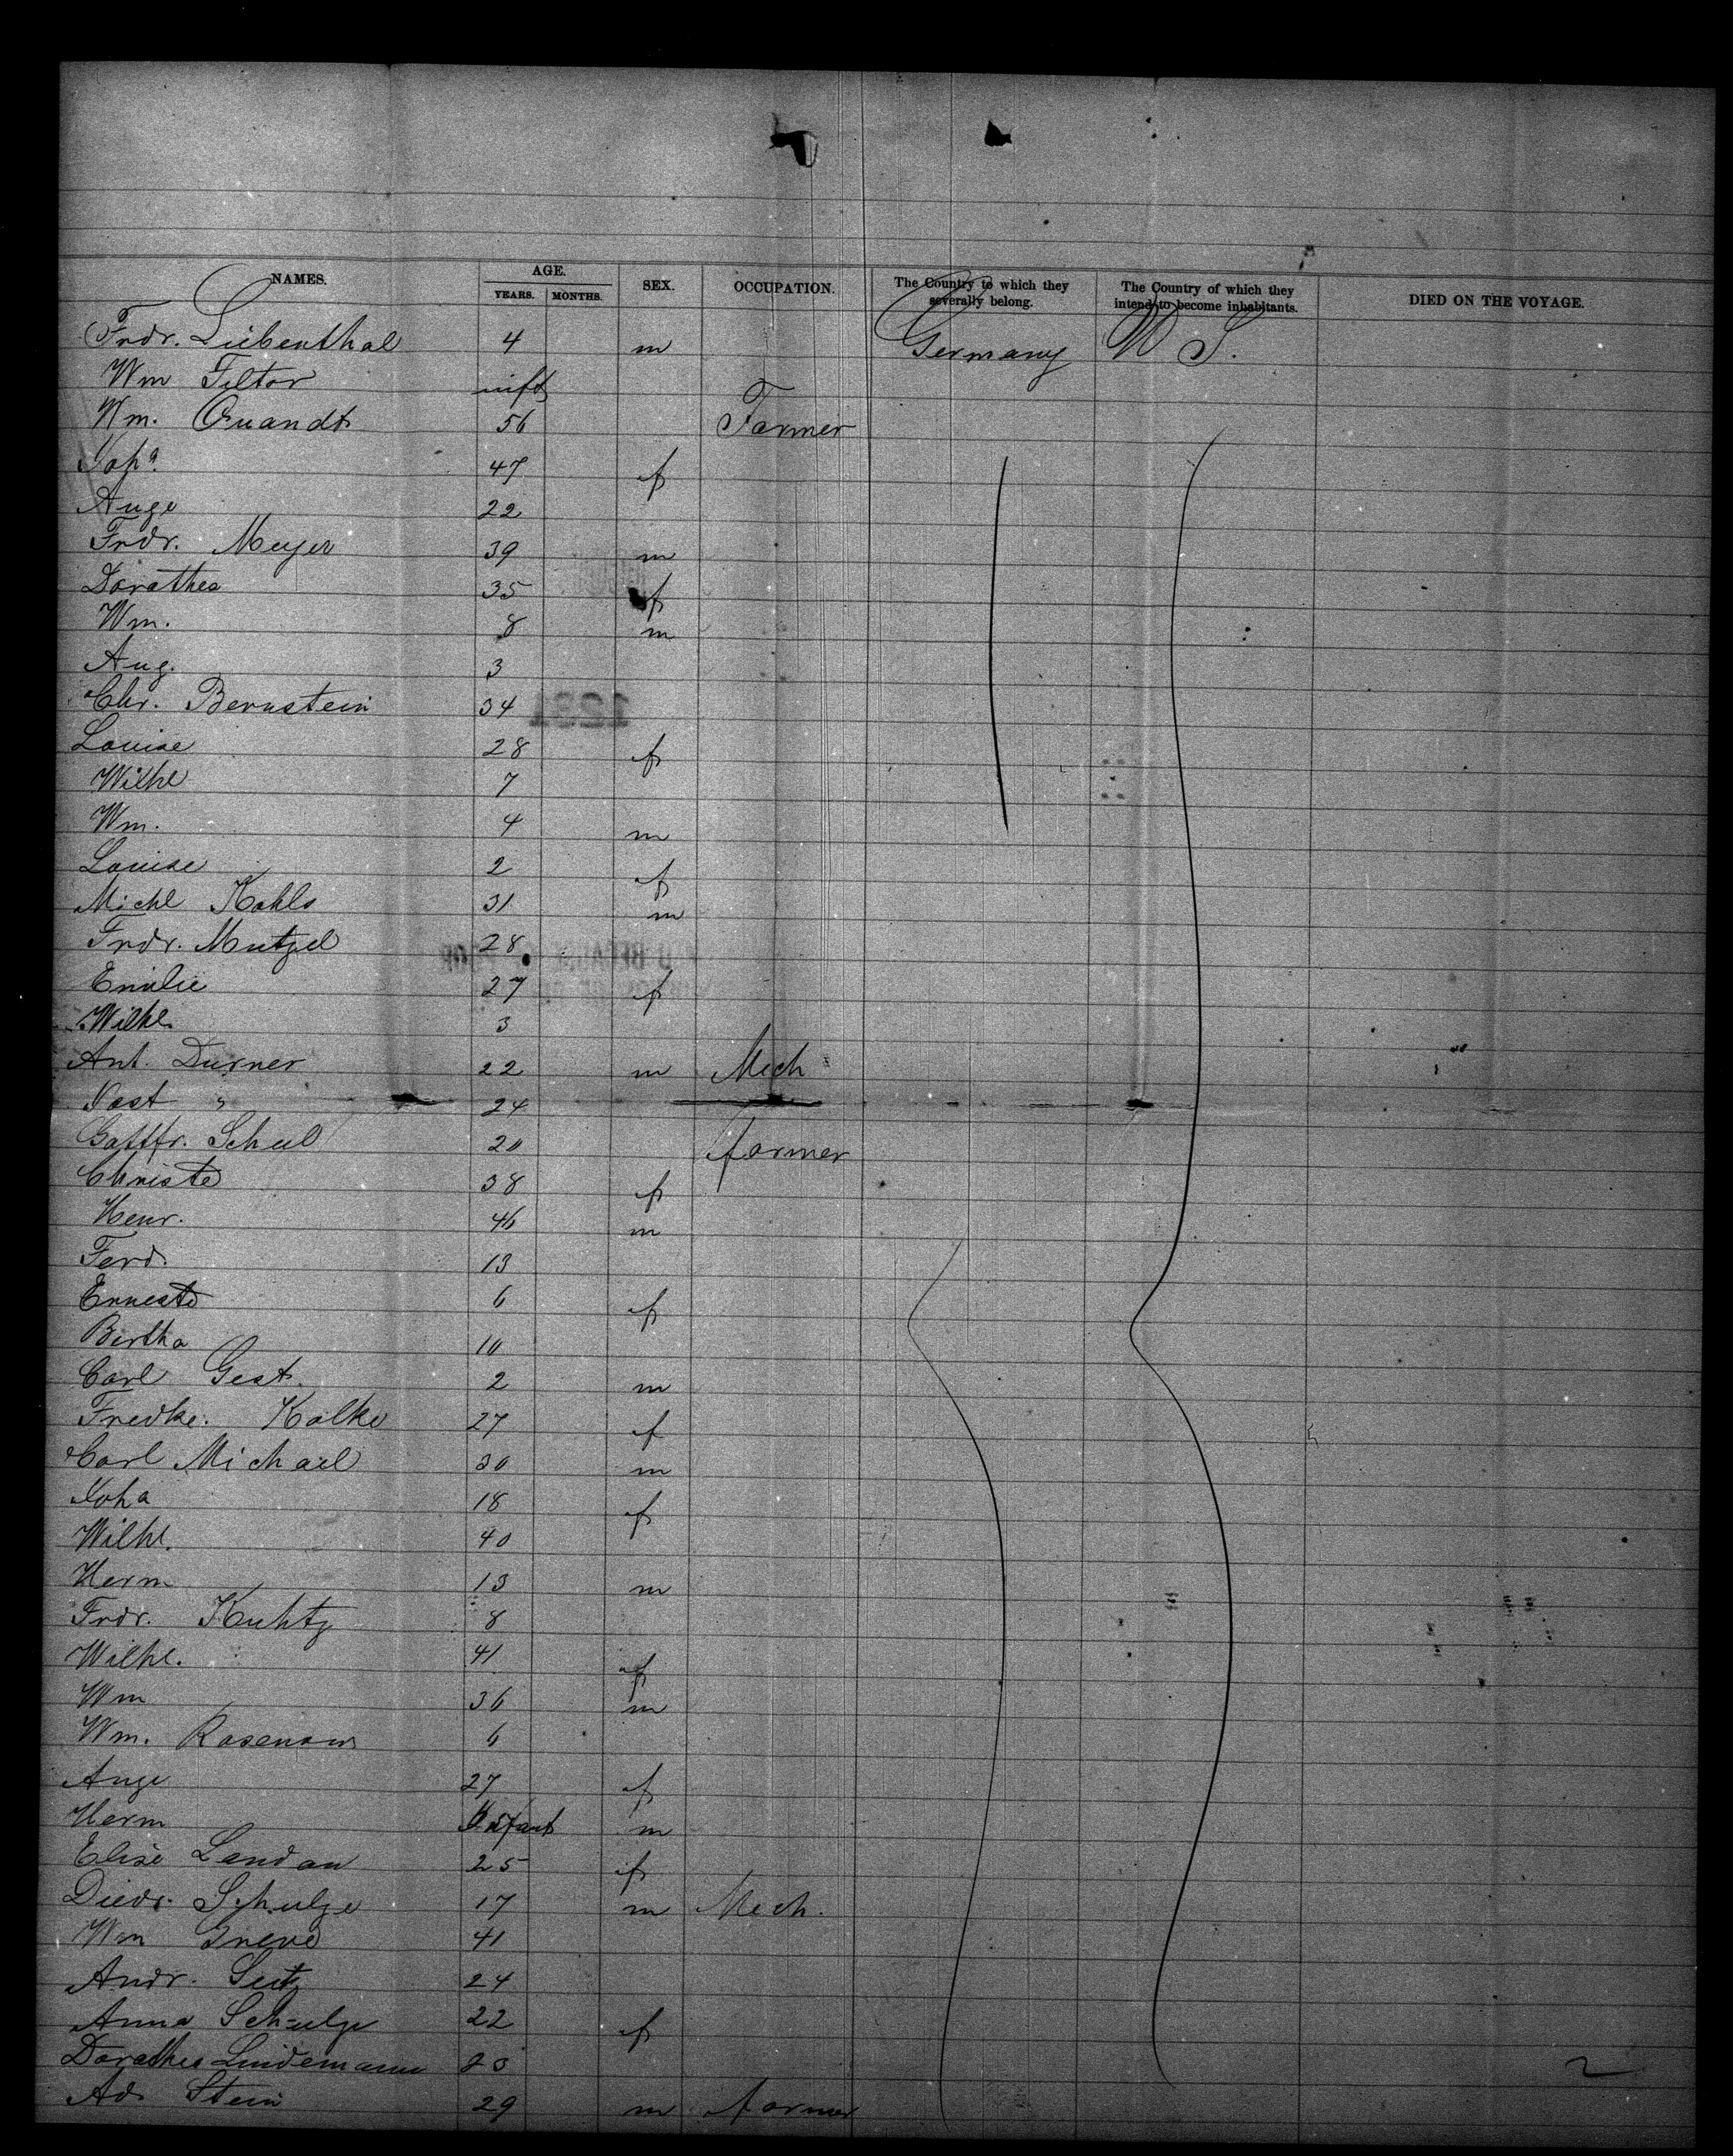 NAMES. AGE. YEARS. MONTHS. SEX. OCCUPATION. The Country to which they severally belong. The Country of which they intend to become inhabitants. DIED ON THE VOYAGE.
Frdr. Liebenthal 4 m Germany U S.
Wm Filter inft
Wm. Quandt 56 Farmer
Joha 47 f
Auge 22
Frdr. Meyer 39 m
Dorothea 35 f
Wm. 8 m
Aug. 3
Chr. Bernstein 34
Louise 28 f
Wilhe 7
Wm. 4 m
Louise 2 f
Michl Kohls 31 m
Frdr. Mutzel 28
Emilie 27 f
Wilhe. 3
Ant. Durner 22 m Mech
Jost " 24
Gottfr. Scheel 20 farmer
Christe 38 f
Henr. 46 m
Ferd. 13
Erneste 6 f
Bertha 10
Carl Gest. 2 m
Fredke. Kolke 27 f
Carl Michael 30 m
Joha 18 f
Wilhe. 40
Herm 13 m
Frdr. Kuhtz 8
Wilhe. 41 f
Wm 36 m
Wm. Rosenow 6
Auge 27 f
Herm Infant m
Elise Landau 25 f
Diedr. Schulze 17 m Mech.
Wm Greve 41
Andr. Seitz 24
Anna Schulze 22 f
Dorothea Lindemann 20
Ad. Stein 29 m farmer